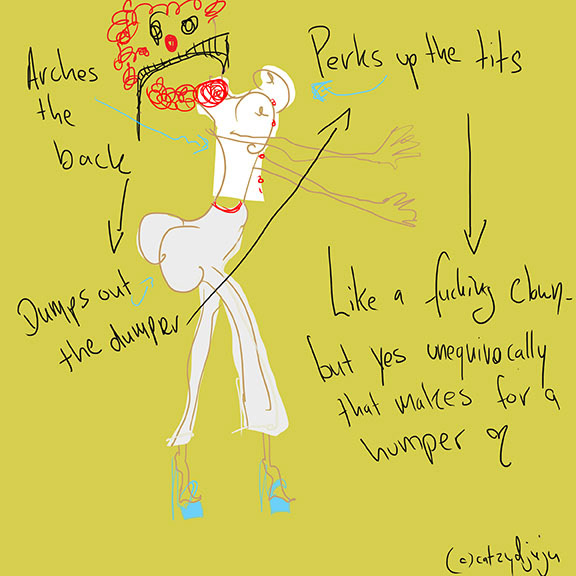 Arches
the
back
Dumps out
the dumper
Perks up the tits
Like a fucking clown-
but yes unequivocally
that makes for a
humper
(c)catzydjuju